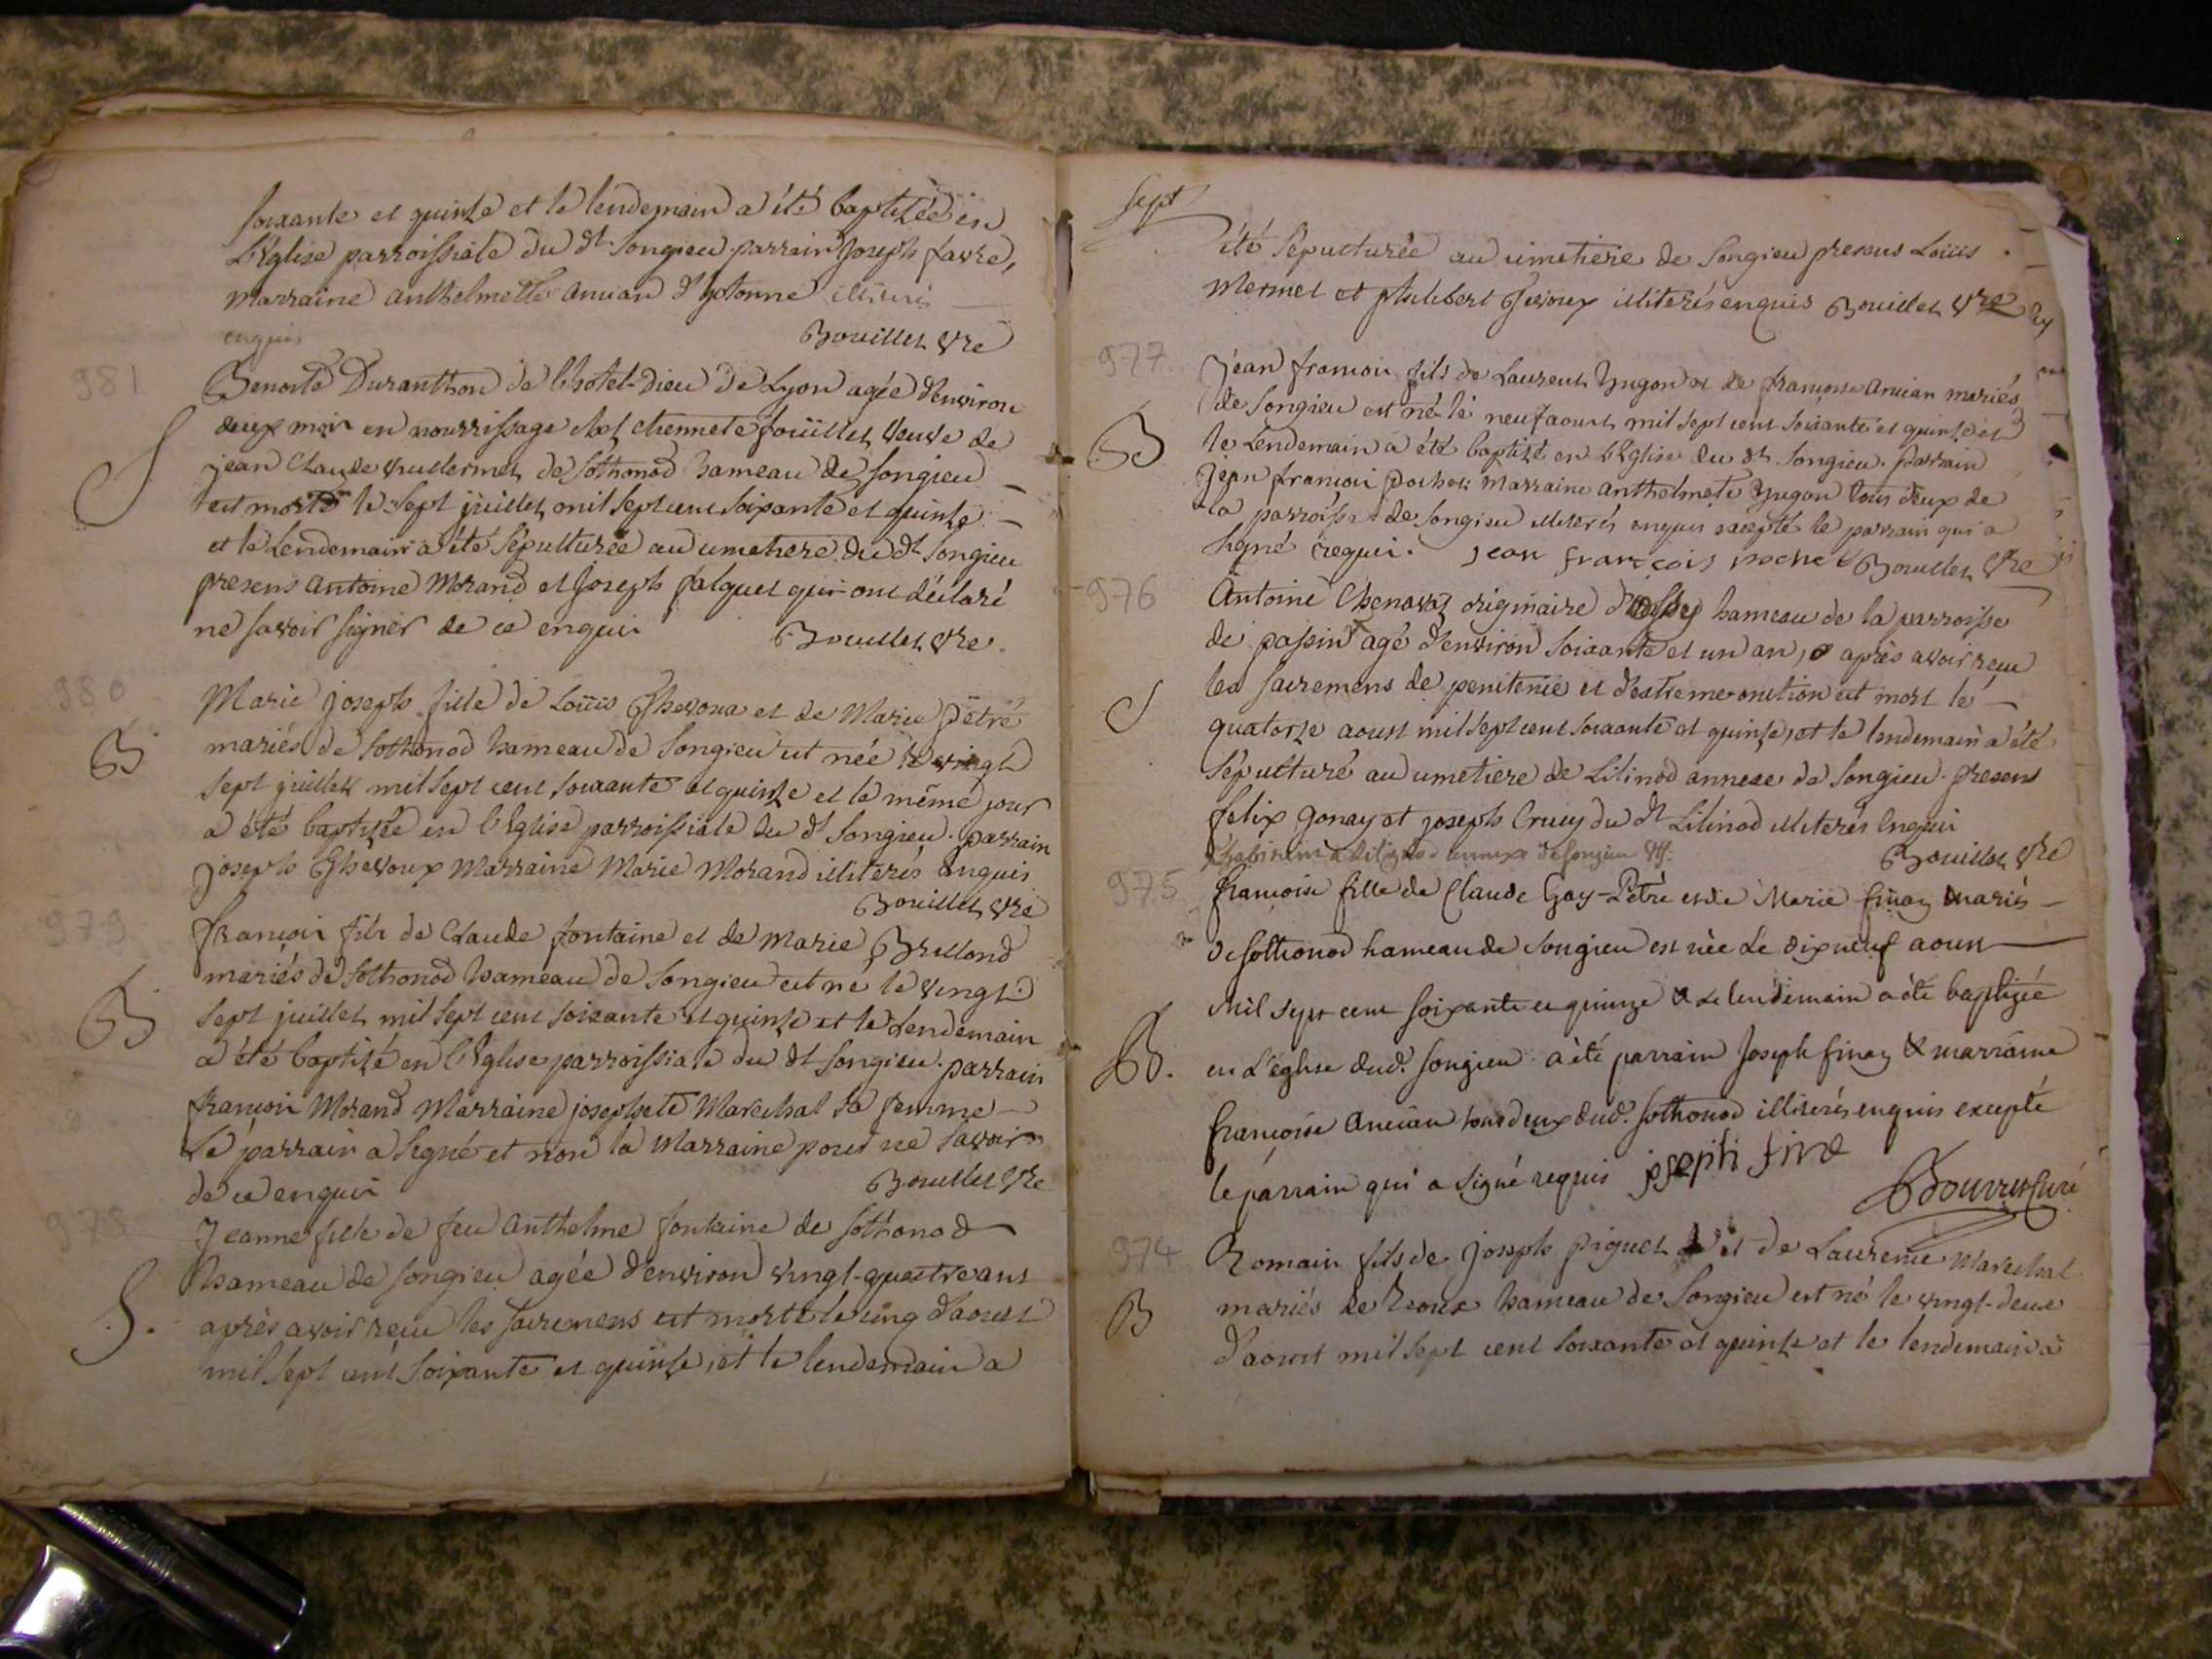 soixante et quinze et le lendemain a été baptizée en
l'Eglise parroissiale du dt Songieu parrain Joseph favre,
Marraine Anthelmette Ancian d'yotonne illiterés
enquis Bouillet vre
981
Benoite Duranthon de l'hotel-Dieu de Lyon agée d'environ
deux mois en nourrissage chez etiennete fouillet veuve de
S
jean Claude vuillermet de Sothonod hameau de Songieu
est morte le sept juillet mil sept cent soixante et quinze
et le lendemain a été sépulturée au cimetiere du dt Songieu
presens Antoine Morand et Joseph falquet qui ont déclaré
ne savoir signer de ce enquis Bouillet vre.
980
Marie joseph fille de Loüis Thevoux et de Marie Pétré
B
mariés de Sothonod hameau de Songieu est née le vingt
sept juillet mil sept cent soixante et quinze et le même jour
a été baptizée en l'Eglise parroissiale du dt Songieu. parrain
joseph Thevoux Marraine Marie Morand illiterés enquis
Bouillet vre
979
françois fils de Claude fontaine et de Marie Brillond
mariés de Sothonod hameau de Songieu est né le vingt
B
sept juillet mil sept cent soixante et quinze et le Lendemain
a été baptizé en l'Eglise parroissiale du dt Songieu. parrain
françois Morand Marraine josephete Marechal sa femme
Le parrain a signé et non la Marraine pour ne savoir
de ce enquis Bouillet vre
978
Jeanne fille de feu Anthelme fontaine de Sothonod
hameau de Songieu agée d'environ vingt-quatre ans
S.
après avoir reçu les sacremens est morte le cinq d'aoust
mil sept cent soixante et quinze, et le lendemain a
sept
été sépulturée au cimetiere de Songieu presens Loüis
Mermet et philibert Thevoux illiterés enquis Bouillet vre
977
jean françois fils de Laurent Yugon et de françoise Ancian mariés
de Songieu est né le neuf aoust mil sept cent soixante et quinze et
B
le Lendemain a été baptizé en l'Eglise du dt Songieu. parrain
jean françois pochet Marraine Anthelmete Yugon tous deux de
la parroisse de Songieu illiterés enquis excepté le parrain qui a
signé requis. jean françois pochet Bouillet vre
976
Antoine Chenavaz originaire hameau de la parroisse
de passin agé d'environ soixante et un an, après avoir reçu
S
les sacremens de penitence et d'extreme-onction est mort le
quatorze aoust mil sept cent soixante et quinze, et le lendemain a été
sépulturé au cimetiere de Lilinod annexe de Songieu. presens
felix Gonay et joseph Cruiy du dt Lilinod illiterés enquis
habitant a Lilignod annexe de Songieu Bouillet vre
975
françoise fille de Claude Gay-Pétré et de Marie finaz mariés
de Sothonod hameau de Songieu est née Le dix neuf aoust
Mil sept cent soixante et quinze & Le lendemain a été baptizée
B.
en L'eglise dud. Songieu a été parrain Joseph finaz & marraine
françoise Ancian tous deux dud. Sothonod illiterés enquis excepté
le parrain qui a signé requis joseph fina
Bouvier Curé
974
Romain fils de joseph piguet et de Laurence Marechal
B
mariés de hameau de Songieu est né le vingt-deux
d'aoust mil sept cent soixante et quinze et le lendemain a